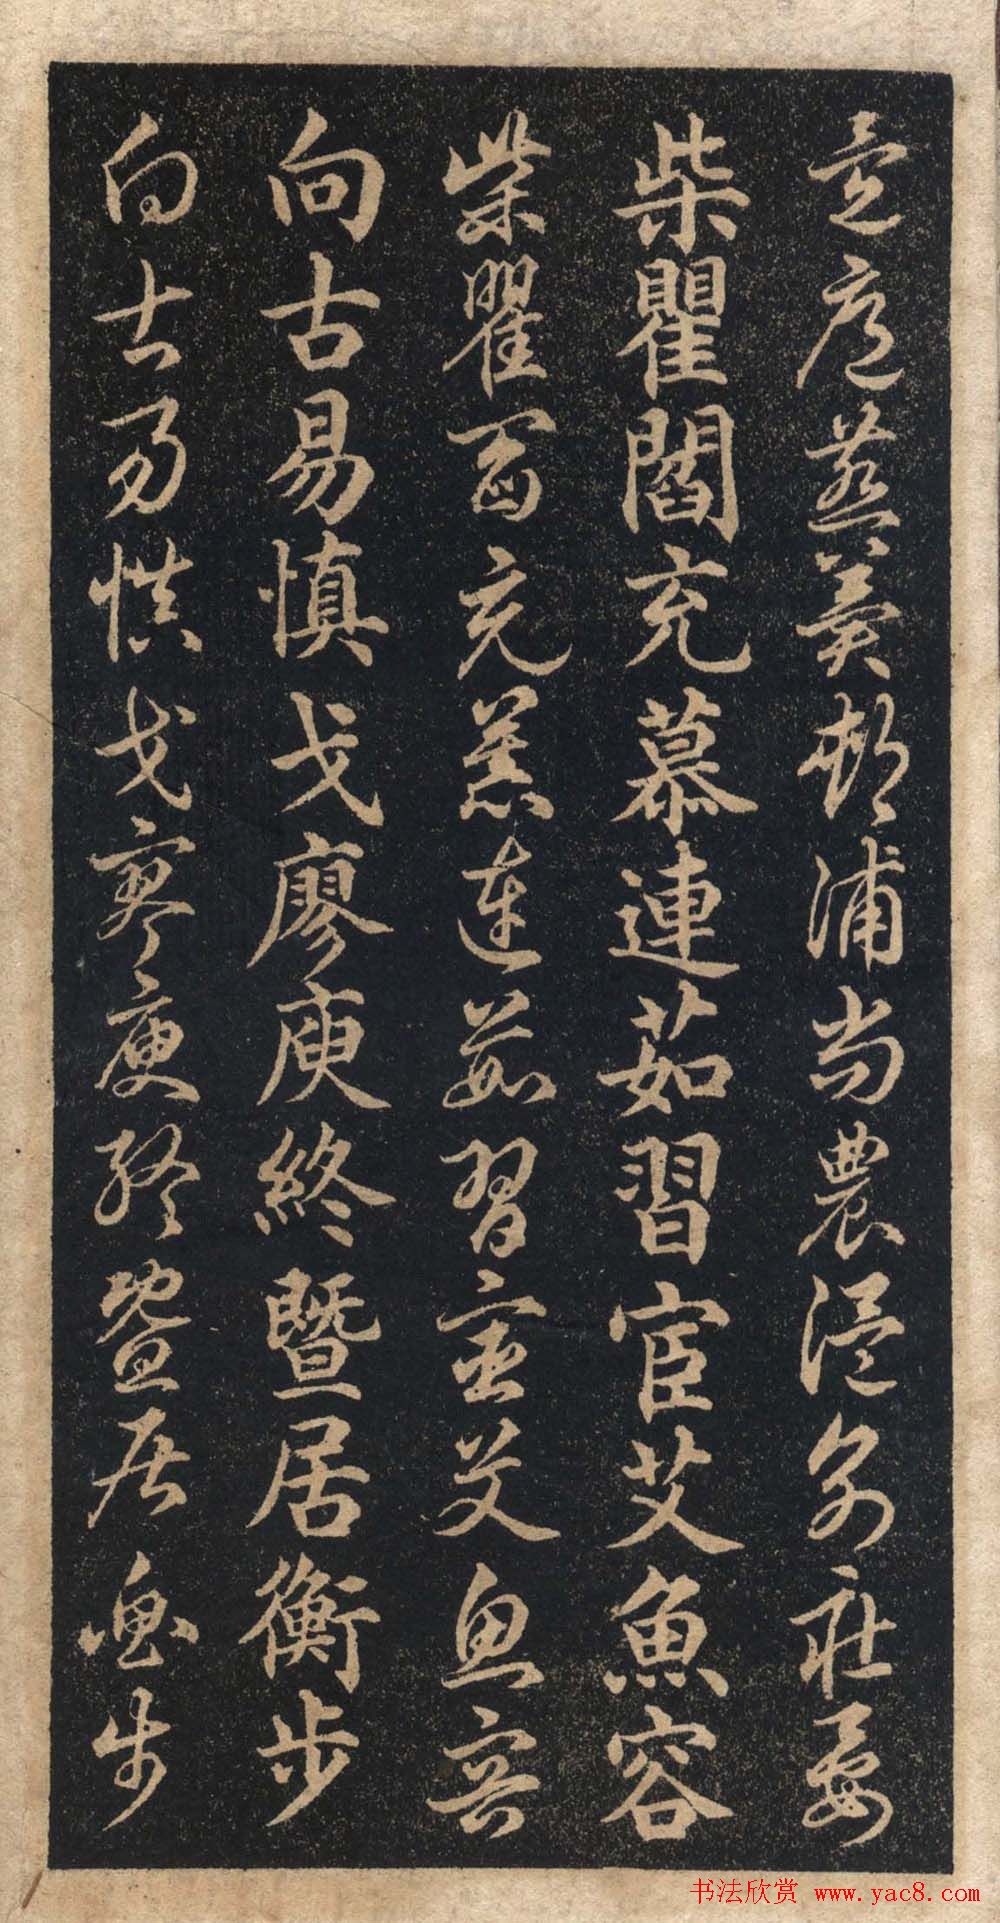 邊扈燕冀郟浦尚農温别莊晏
柴瞿閻充慕連茹習宦艾魚容
柴瞿閻充慕連茹習宦艾魚容
向古易慎戈廖庾終暨居衡步
向古易慎戈廖庾終暨居衡步
书法欣赏 www.yac8.com